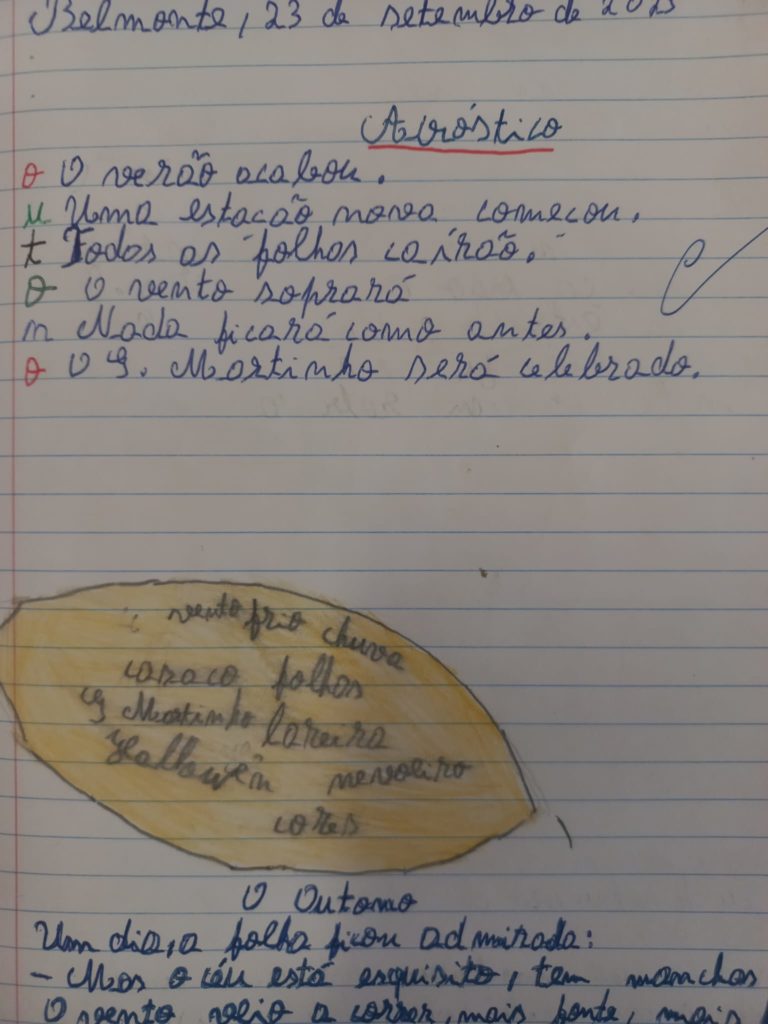 Belmonte, 23 de setembro de 2025
Acróstico
O O verão acabou.
u Uma estacão nova comecou.
t Todos as folhas caírão.
O O vento soprará
n Nada ficará como antes.
O O S. Martinho será celebrado.
vento frio chuva
casaco folhas
S Martinho lareira
Hallowêin nevoeiro
cores
O Outono
Um dia, a folha ficou admirada:
- Mas o céu está esquisito, tem manchas
O vento veio a correr, mais forte, mais